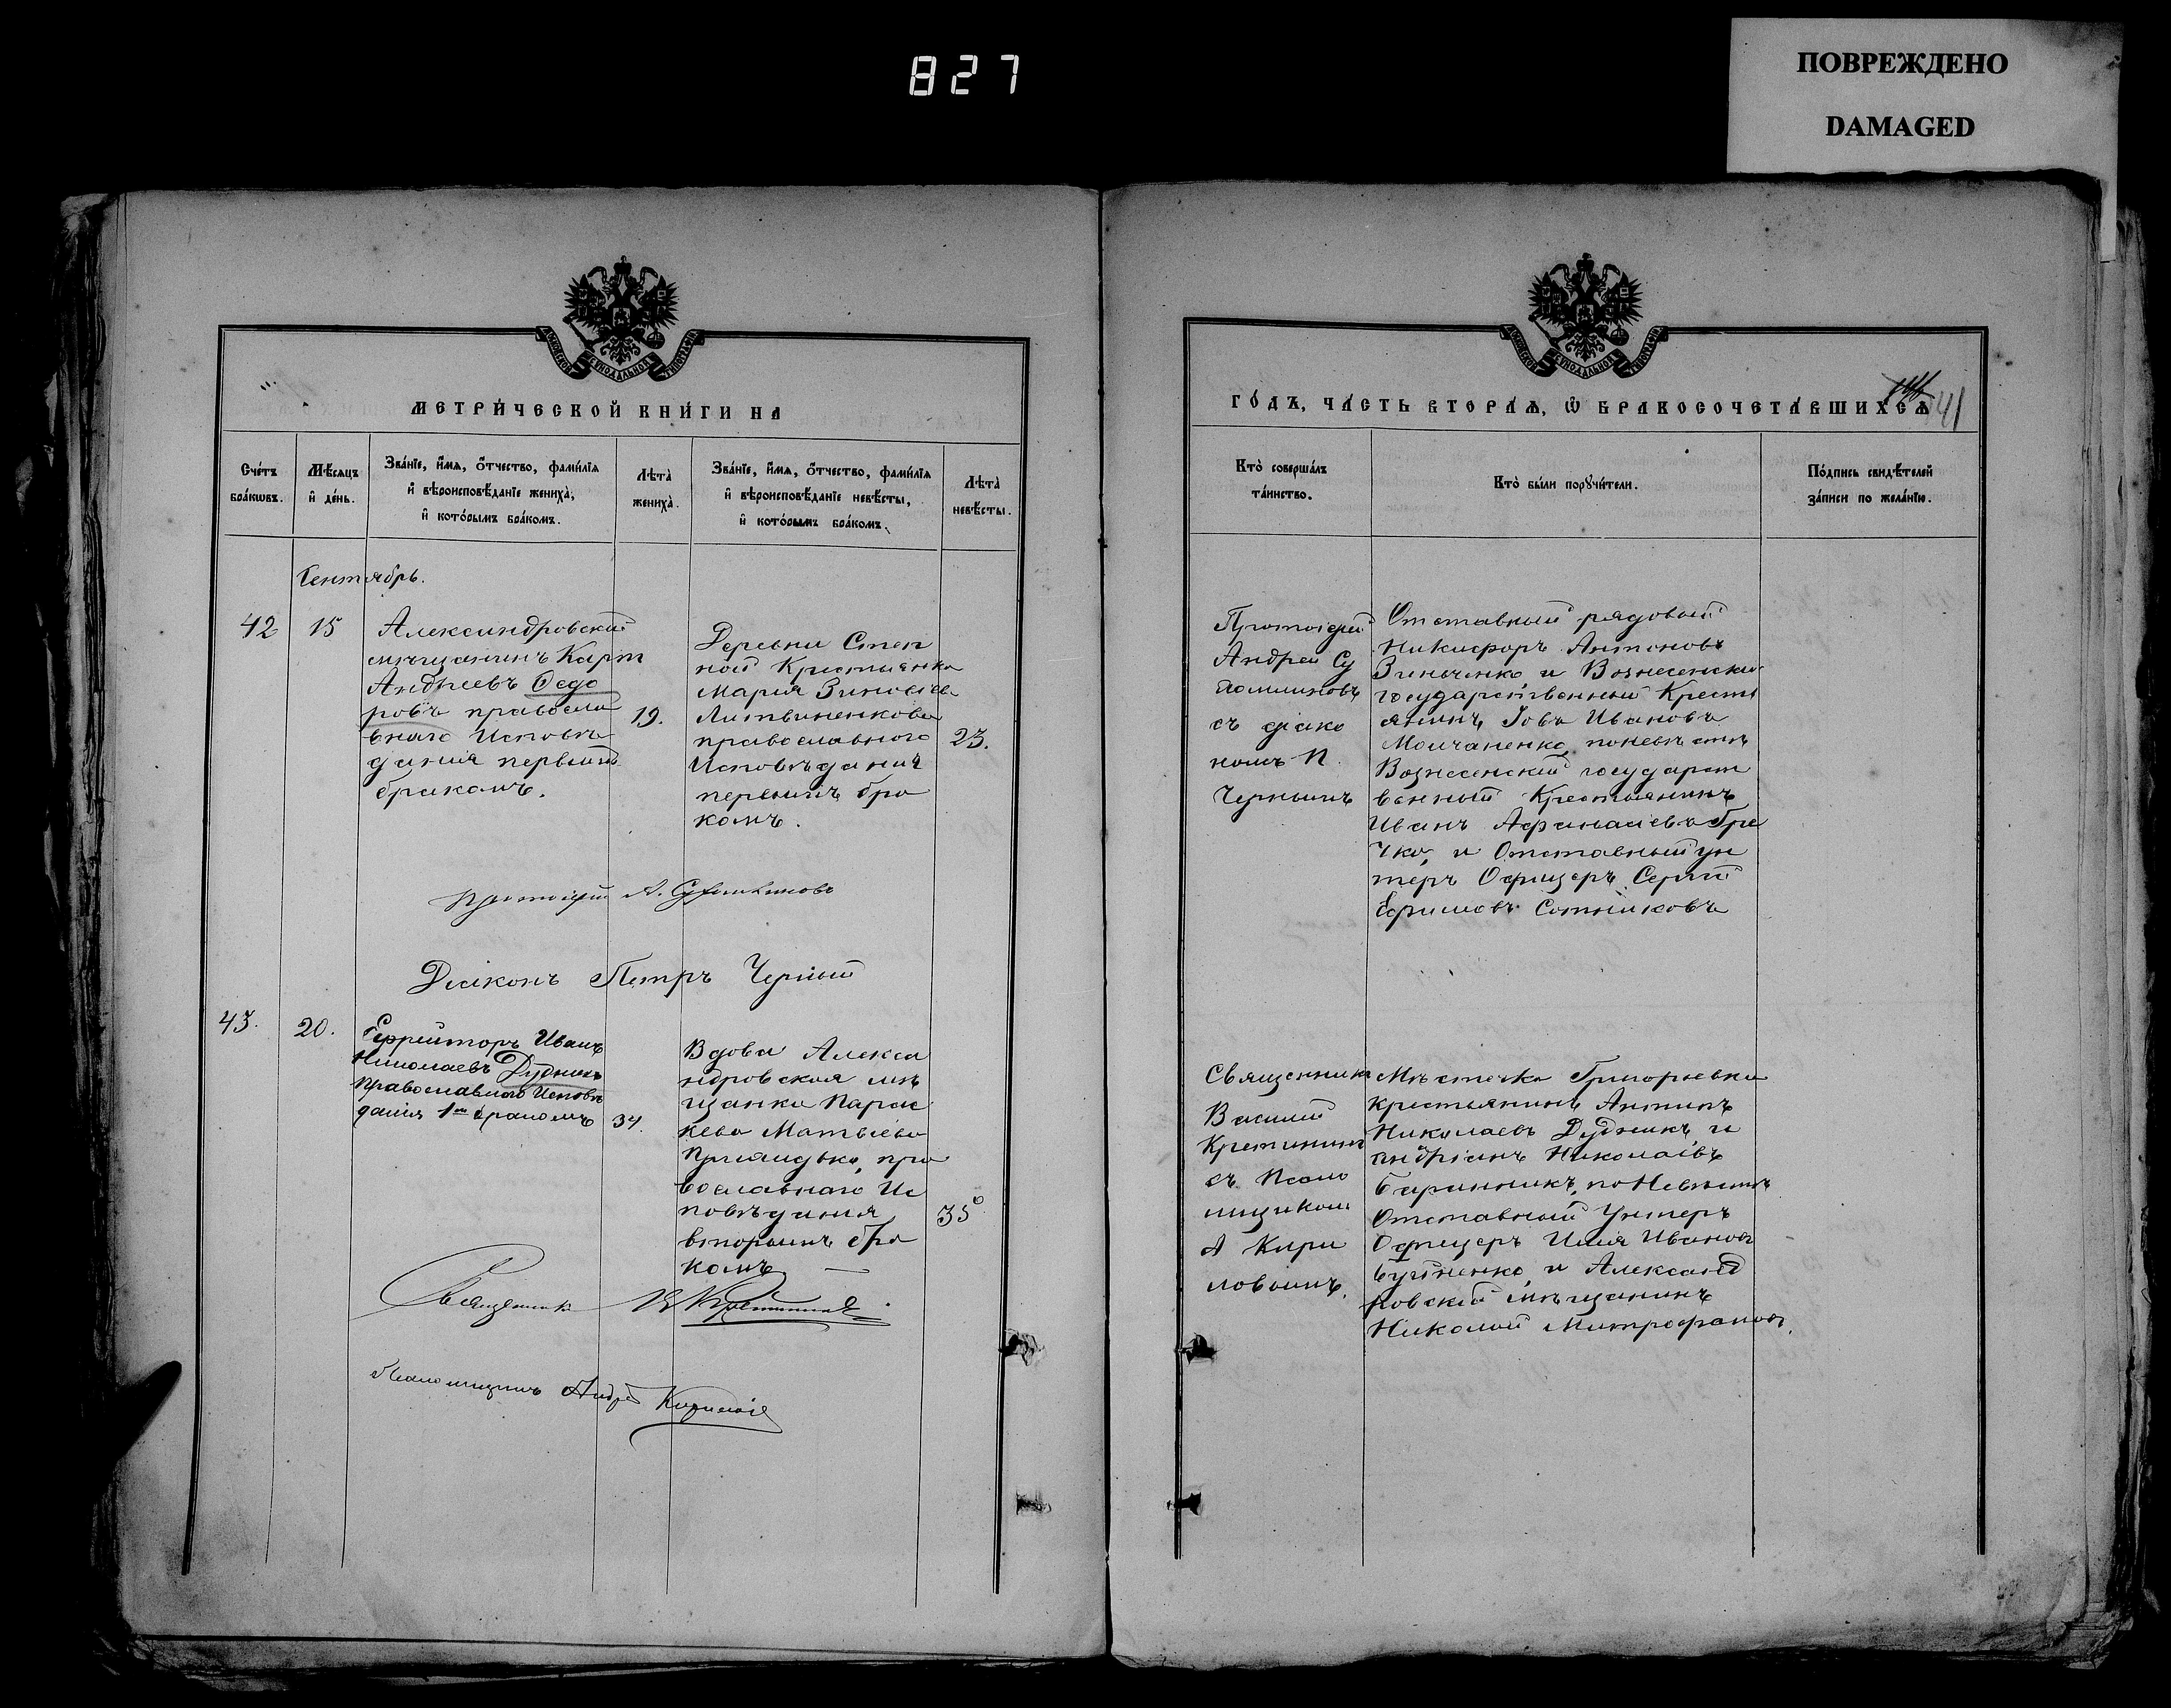 827
ПОВРЕЖДЕНО
DAMAGED
МОСКОВСКОЙ СѴНОДАЛЬНОЙ ТИПОГРАФІИ
МЕТРИЧЕСКОЙ КНИГИ НА
Счетъ браковъ.
Мѣсяцъ и день.
Званіе, имя, отчество, фамилія и вѣроисповѣданіе жениха, и которымъ бракомъ.
Лѣта жениха.
Званіе, имя, отчество, фамилія и вѣроисповѣданіе невѣсты, и которымъ бракомъ.
Лѣта невѣсты.
Сентябрь.
42
15
Александровскій
мѣщанинъ Карп
Андреевъ Федо
ровъ правосла
внаго Исповѣ
данія первымъ
бракомъ.
19.
Деревни Степ
ной Крестьянка
Марія Зиновіева
Литвиненкова
православного
Исповѣданія
первымъ бра
комъ.
23.
Протоіерей А.
Діаконъ Петръ Черный
43.
20.
Ефрейторъ Иванъ
Николаевъ Дудникъ
православнаго Исповѣ
данія 1мъ бракомъ
34.
Вдова Алекса
ндровская мѣ
щанка Парас
кева Матвіева
пра
вославнаго Ис
повѣданія
вторымъ бра
комъ —
35
Священник В Кретининъ
Псаломщикъ Андрей
МОСКОВСКОЙ СѴНОДАЛЬНОЙ ТИПОГРАФІИ
ГОДЪ, ЧАСТЬ ВТОРАЯ, Ѿ БРАКОСОЧЕТАВШИХСЯ
41
Кто совершалъ таинство.
Кто были поручители.
Подпись свидѣтелей записи по желанію.
Протоіерей
Андрей Су
съ діако
номъ П.
Чернымъ
Отставный рядовый
Никифоръ Антоновъ
Зинченко, и Вознесенский
государственный Кресть
янинъ, Іовъ Ивановъ
Молчаненко, по невѣстѣ
Вознесенскій государст
венный Крестьянинъ
Иванъ Афанасіевъ Гре
чко, и Отставный ун
теръ Офицеръ Сергій
Ефимовъ Сотниковъ
Священникъ
Василій
Кретининъ
съ Псало
мщикомъ
А Кири
ловымъ.
Мѣстечка Григорьевки
крестьянинъ Антипъ
Николаевъ Дудникъ, и
Андріанъ Николаевъ
по Невѣстѣ
Отставный Унтеръ
Офицеръ Илія Ивановъ
и Александ
ровскій мѣщанинъ
Николай Митрофановъ.